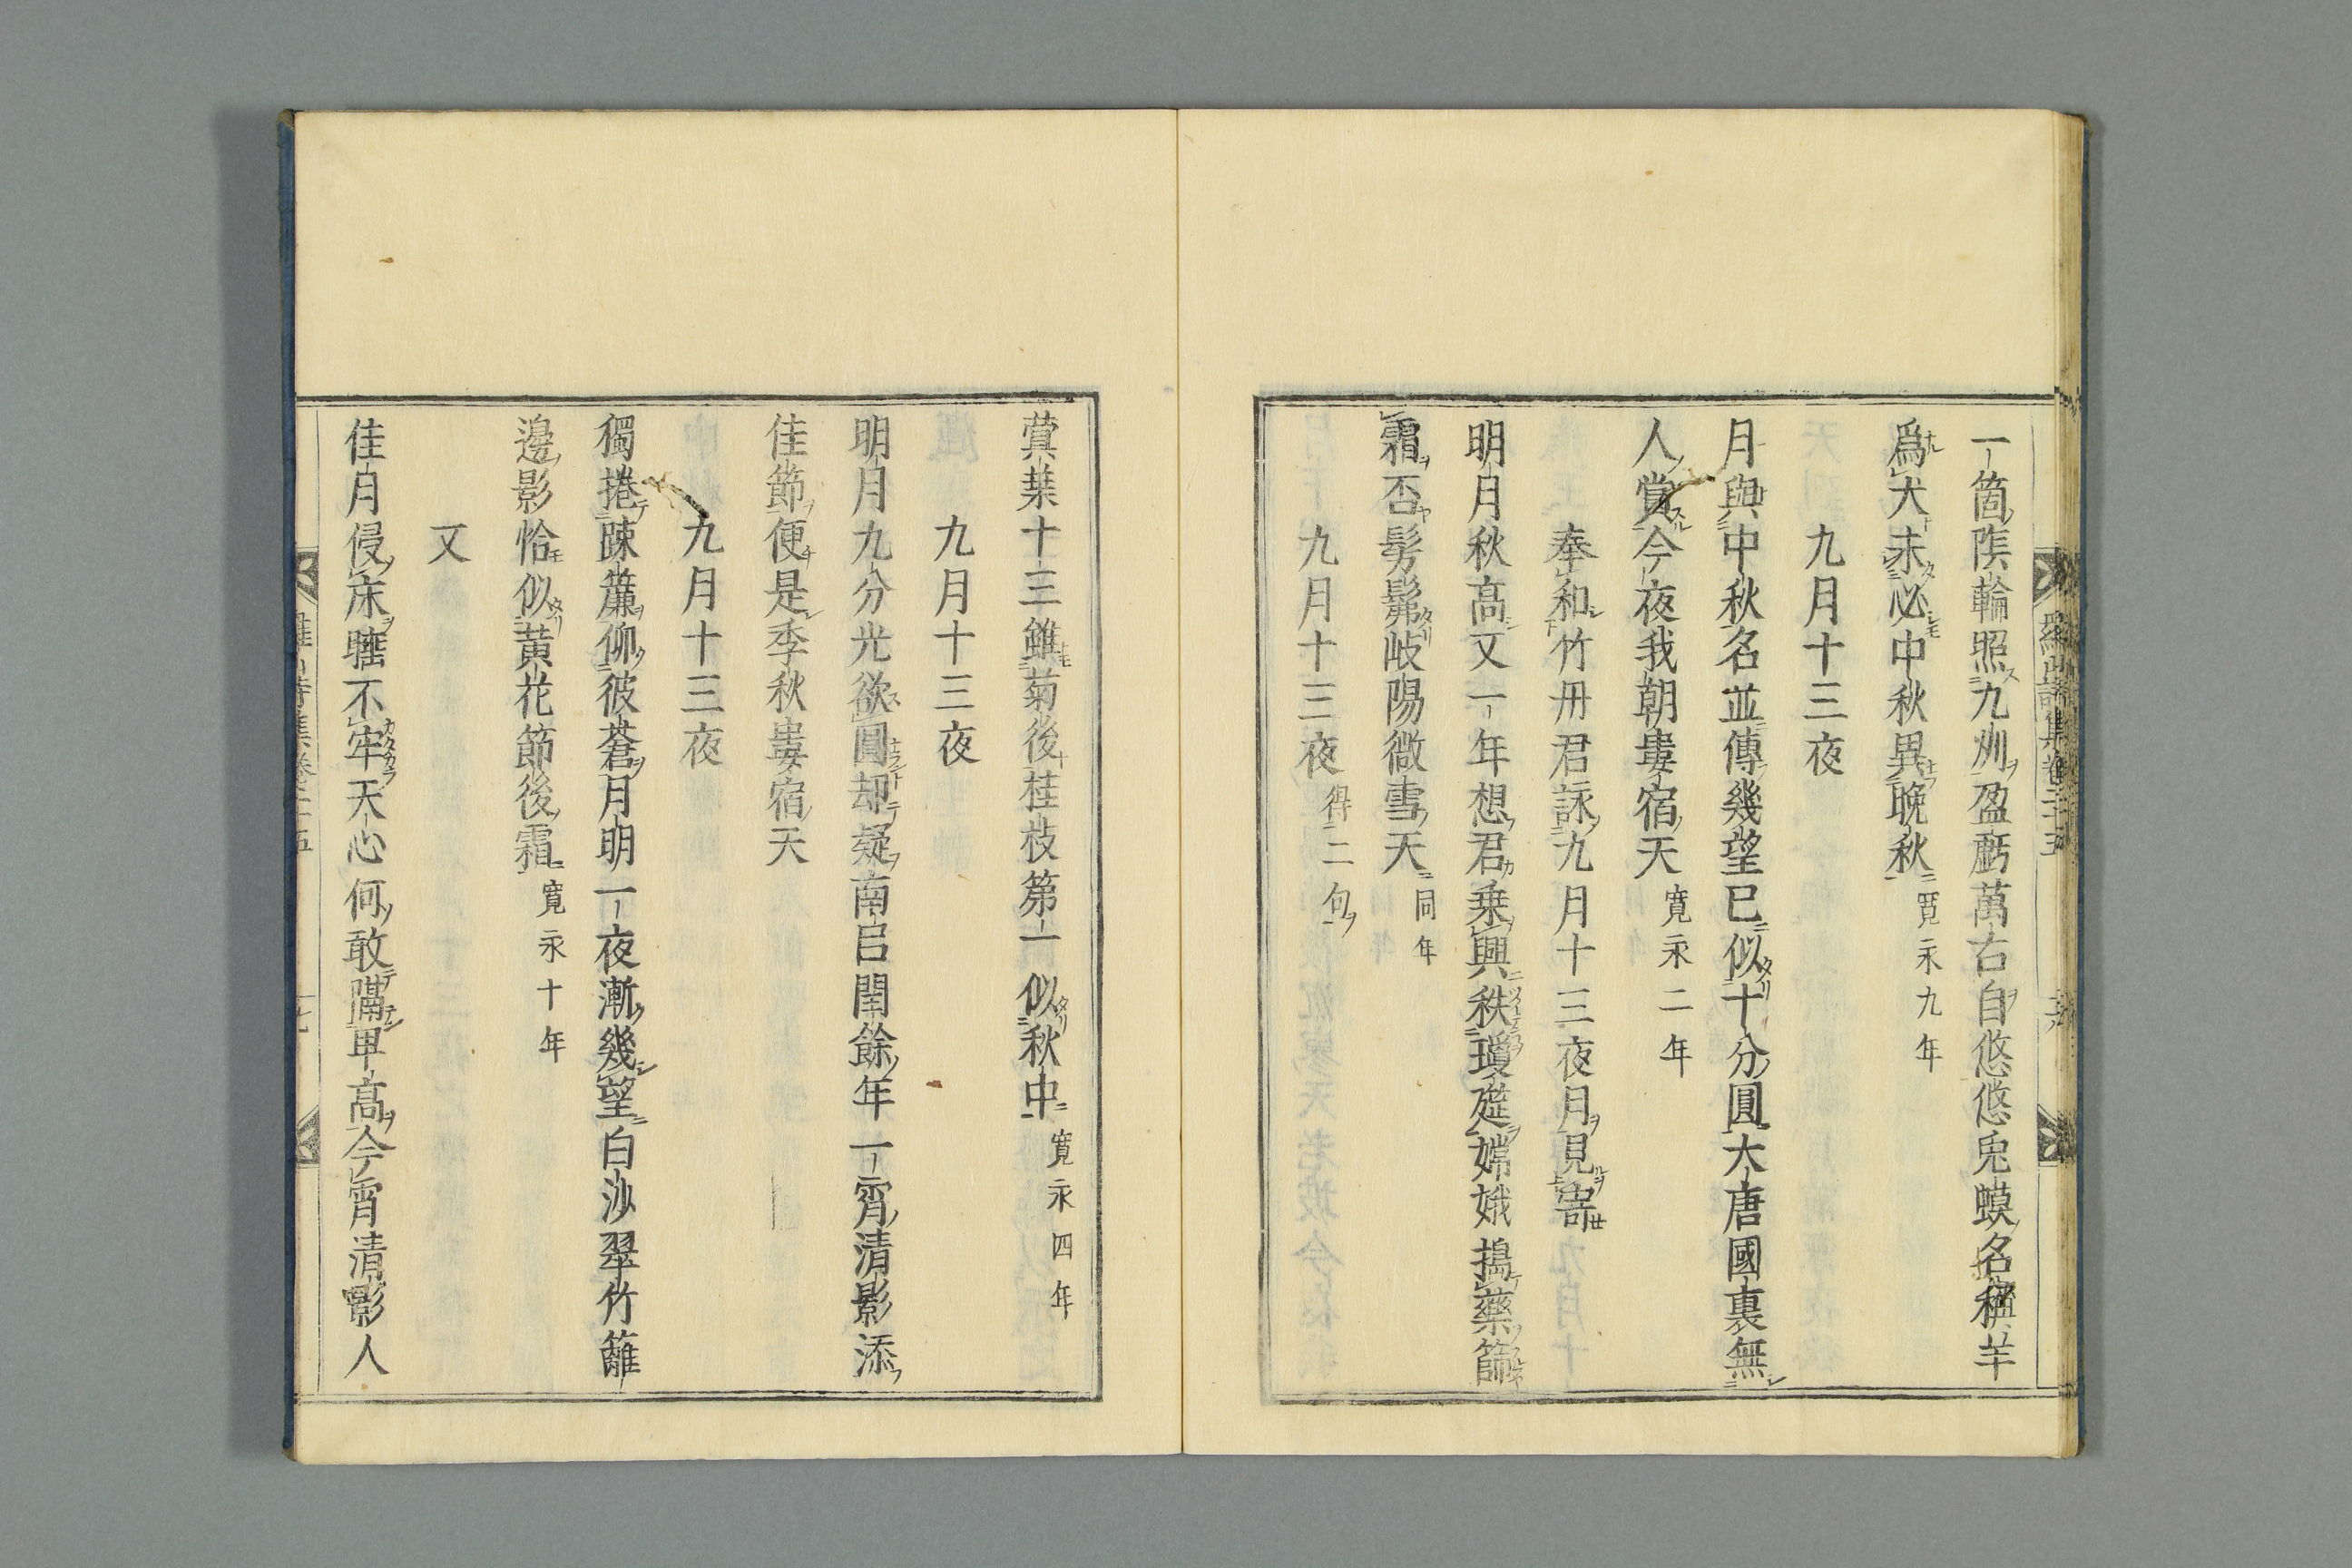 一箇陰輪照九州盈虧萬古自悠悠兎蟆名稱羊
爲犬未必中秋異晩秋 寛永九年
九月十三夜
月與中秋名並傳幾望已似十分圓大唐國裏無
人賞今夜我朝婁宿天 寛永二年
奉和竹丹君詠九月十三夜月見寄
明月秋高又一年想君乗興秩瓊筵嫦娥搗藥篩
霜否髣髴岐陽微雪天 同年
九月十三夜 得二句
蓂葉十三雖菊後桂枝第一似秋中 寛永四年
九月十三夜
明月九分光欲圓却疑南呂閏餘年一霄清影添
佳節便是季秋婁宿天
九月十三夜
獨捲疎簾仰彼蒼月明一夜漸幾望白沙翠竹籬
邊影恰似黄花節後霜 寛永十年
又
佳月侵床睡不牢天心何敢隔卑高今宵清影人
羅山詩集卷三十五